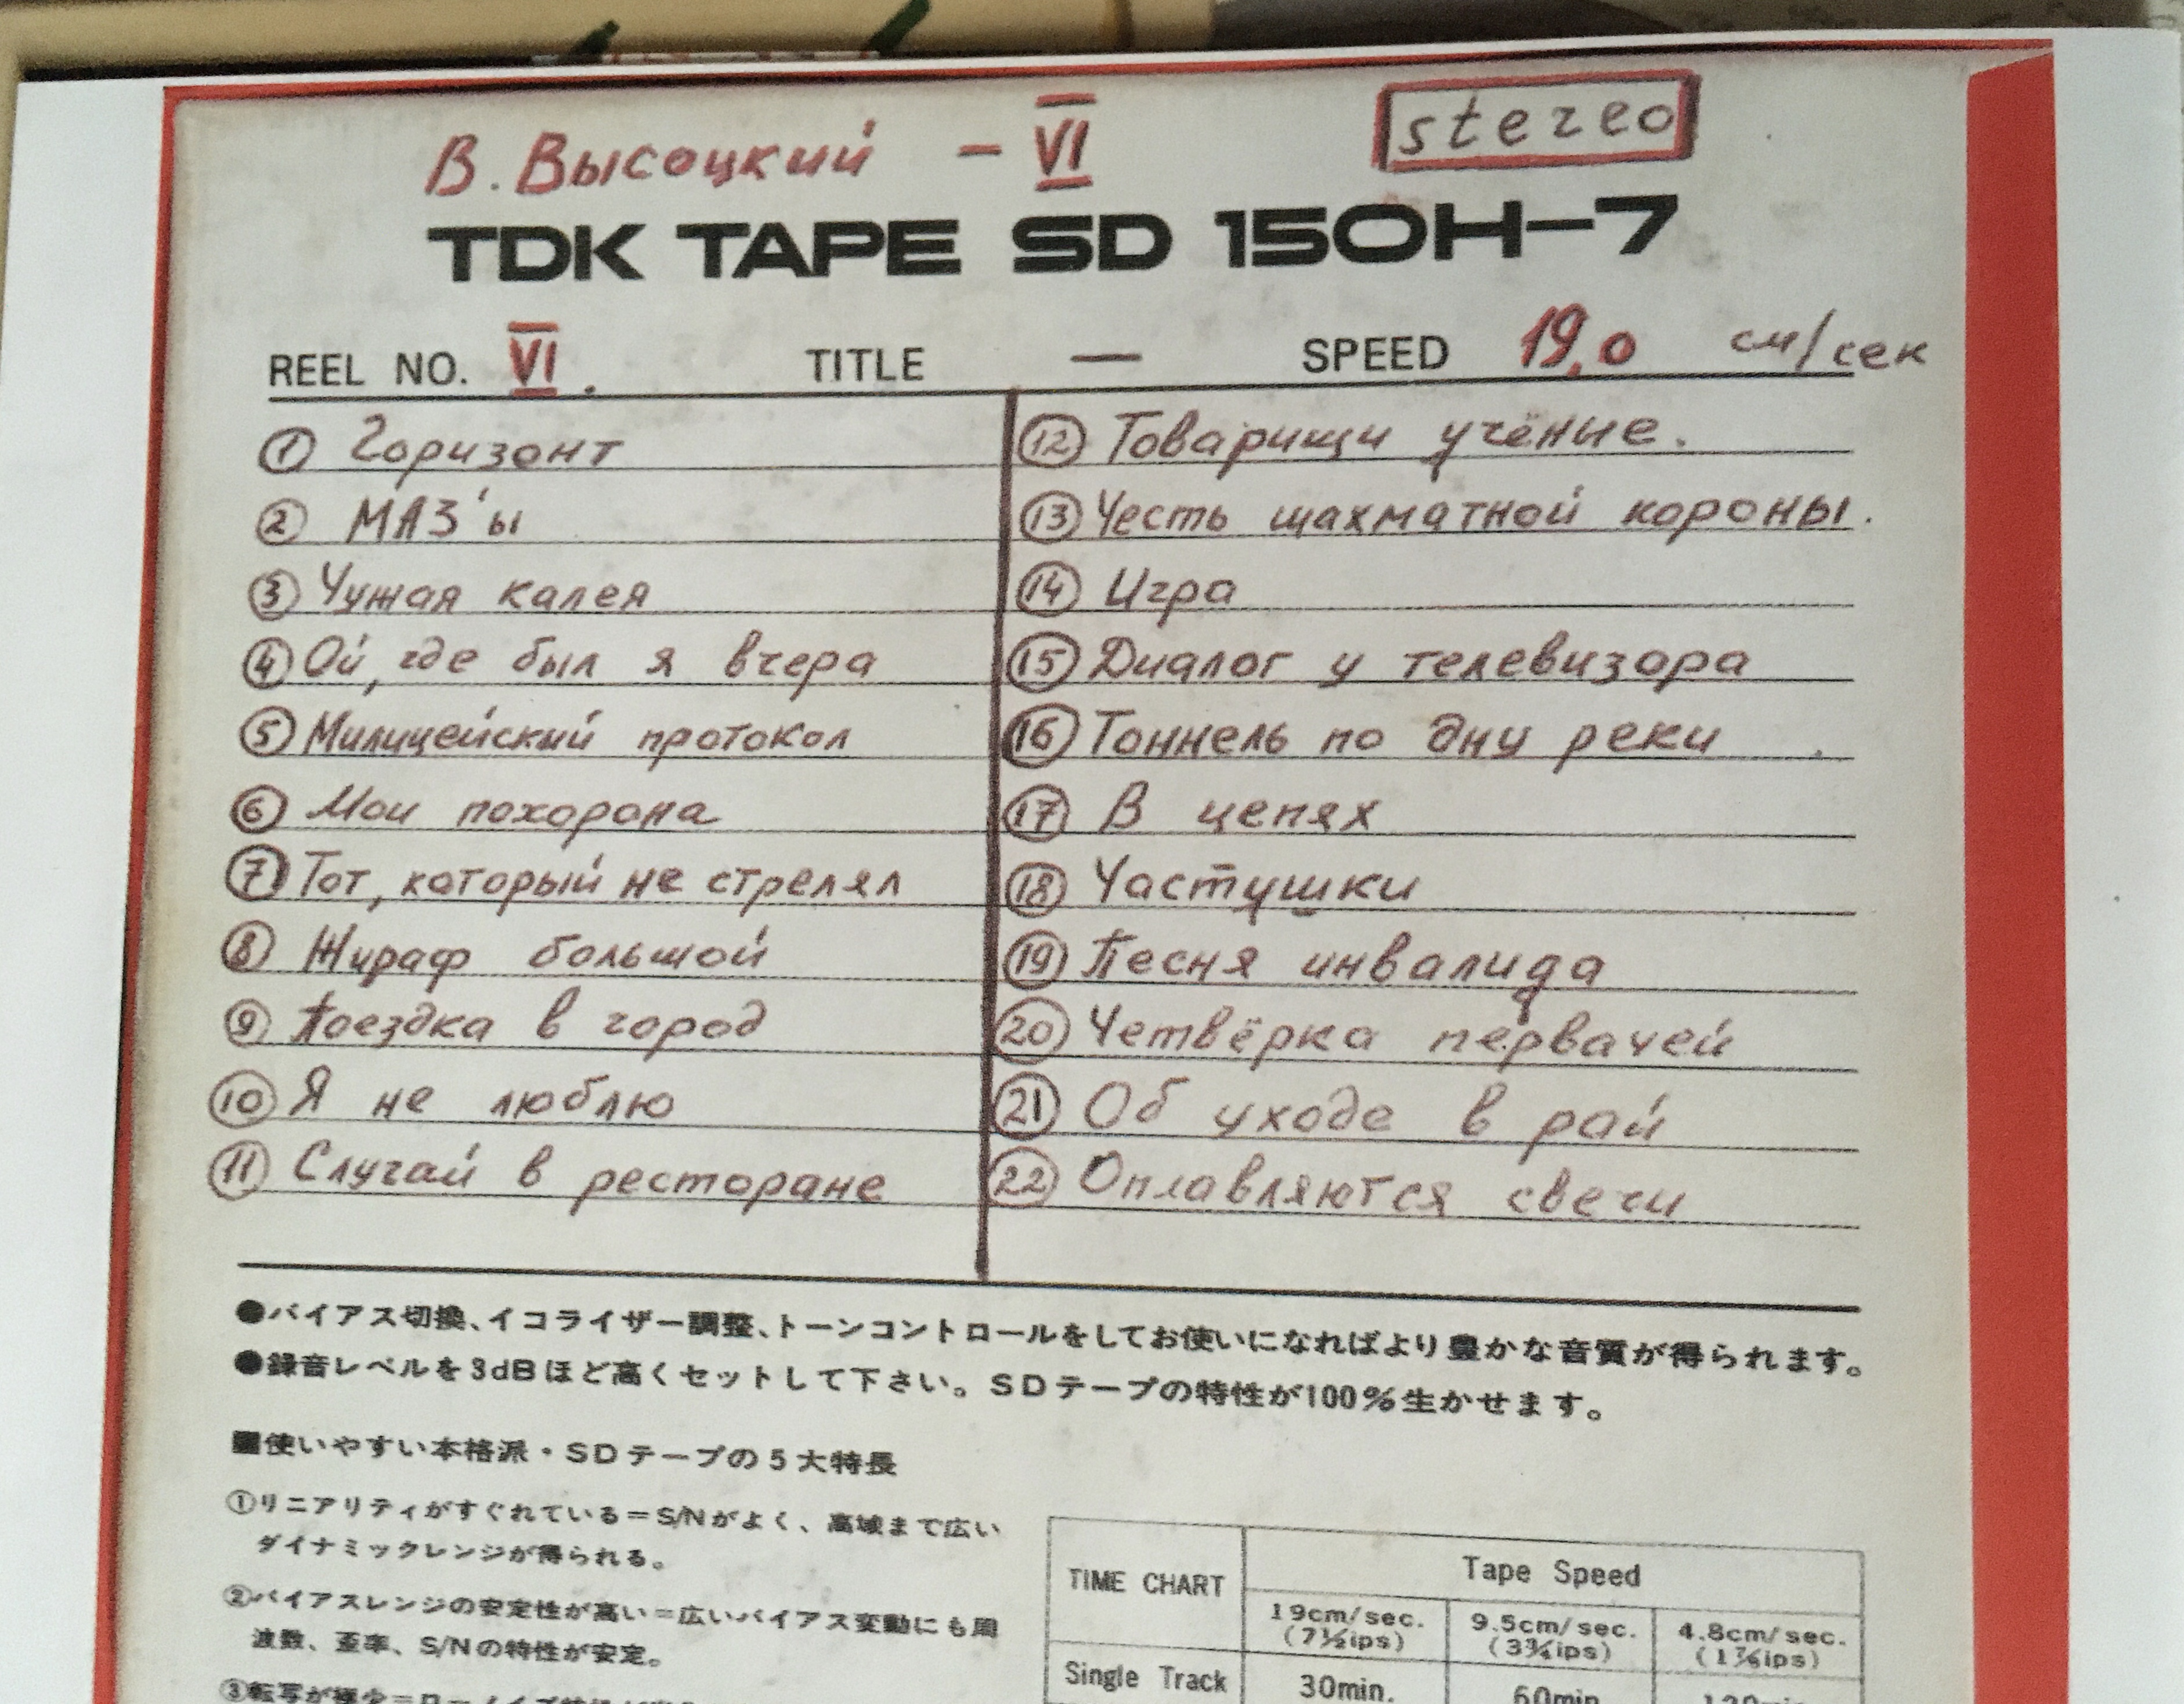 В. Высоцкий – VI
stereo
TDK TAPE SD 150H-7
REEL NO. VI. TITLE — SPEED 19,0 см/сек
① Горизонт
② МАЗ'ы
③ Чужая калея
④ Ой, где был я вчера
⑤ Милицейский протокол
⑥ Мои похорона
⑦ Тот, который не стрелял
⑧ Жираф большой
⑨ Поездка в город
⑩ Я не люблю
⑪ Случай в ресторане
⑫ Товарищи учёние.
⑬ Честь шахматной короны.
⑭ Игра
⑮ Диалог у телевизора
⑯ Тоннель по дну реки
⑰ В цепях
⑱ Частушки
⑲ Песня инвалида
⑳ Четвёрка первачей
㉑ Об уходе в рай
㉒ Оплавляются свечи
●バイアス切換、イコライザー調整、トーンコントロールをしてお使いになればより豊かな音質が得られます。
●録音レベルを3dBほど高くセットして下さい。SDテープの特性が100%生かせます。
■使いやすい本格派・SDテープの5大特長
①リニアリティがすぐれている=S/Nがよく、高域まで広い
ダイナミックレンジが得られる。
②バイアスレンジの安定性が高い=広いバイアス変動にも周
波数、歪率、S/Nの特性が安定。
TIME CHART
Tape Speed
19cm/sec. (7½ips)
9.5cm/sec. (3¾ips)
4.8cm/sec. (1⅞ips)
Single Track 30min. 60min